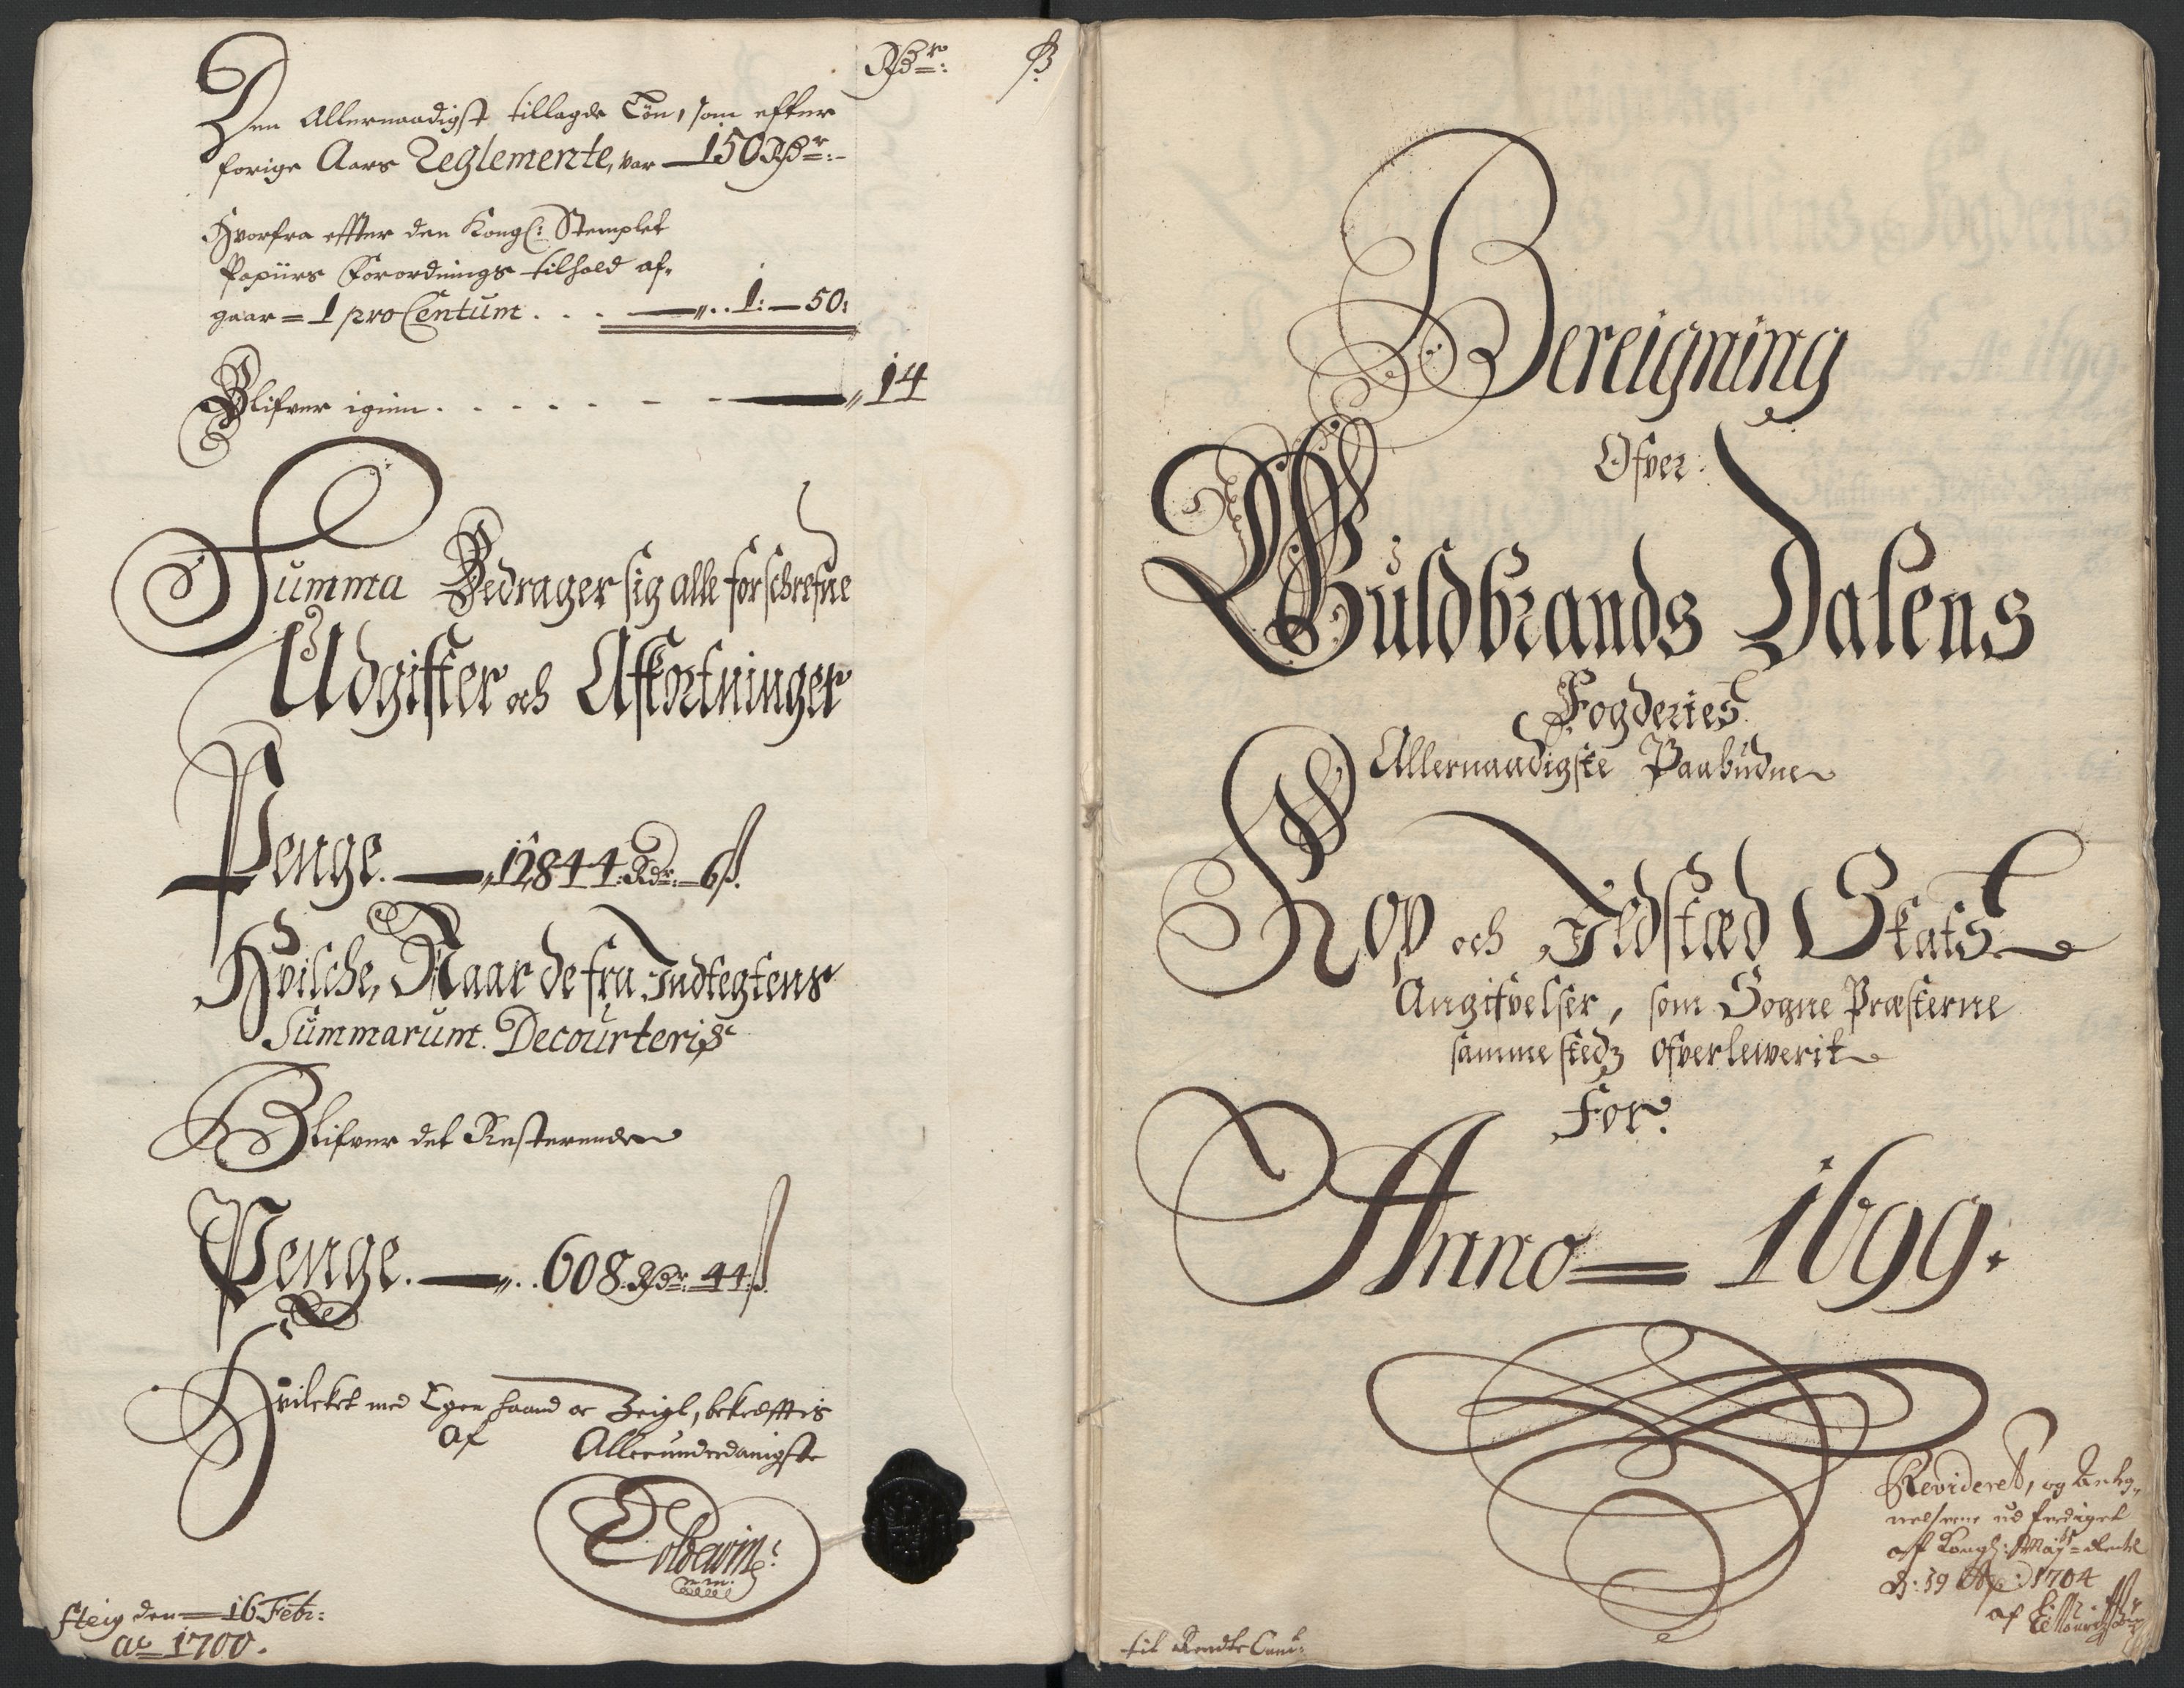 Rdr: ß
Den Allernaadigst tillagde Løn, som efter
forige Aars Reglemente, var — 150 Rdr:
Hvorfra effter den Kongl: Stemplet
Papiirs Forordnings tilhold af„
gaar = 1 pro Centum . . . — „ . . 1: — 50:
Blifver igien . . . . . . . — „ 14
Summa Bedrager sig alle forschrefne
Udgifter och Afkortninger
Penge. — „ 12844: Rdr: 6 ß.
Hvilche, Naar de fra Indtegtens
Summarum Decourteris
Blifver det Resterende
Penge. — „ . . 608. Rdr: 44 ß.
Hvilcket med Egen haand oc Zeigl, bekræfftis
af Allerunderdanigste
mm:
Steig den — 16 Febr:
Ao 1700.
Bereigning
Ofver:
Guldbrands Dalens
Fogderies
Allernaadigste Paabudne
Kop och Ildsted Skats
Angifvelser, som Sogne Præsterne
sammestedz ofverlewerit
For
Anno = 1699.
Revideret, og Anteg„
nelserne ud ferdiget
aff Kongl: May:
d: 19 1704
af
til Rendte Cam: